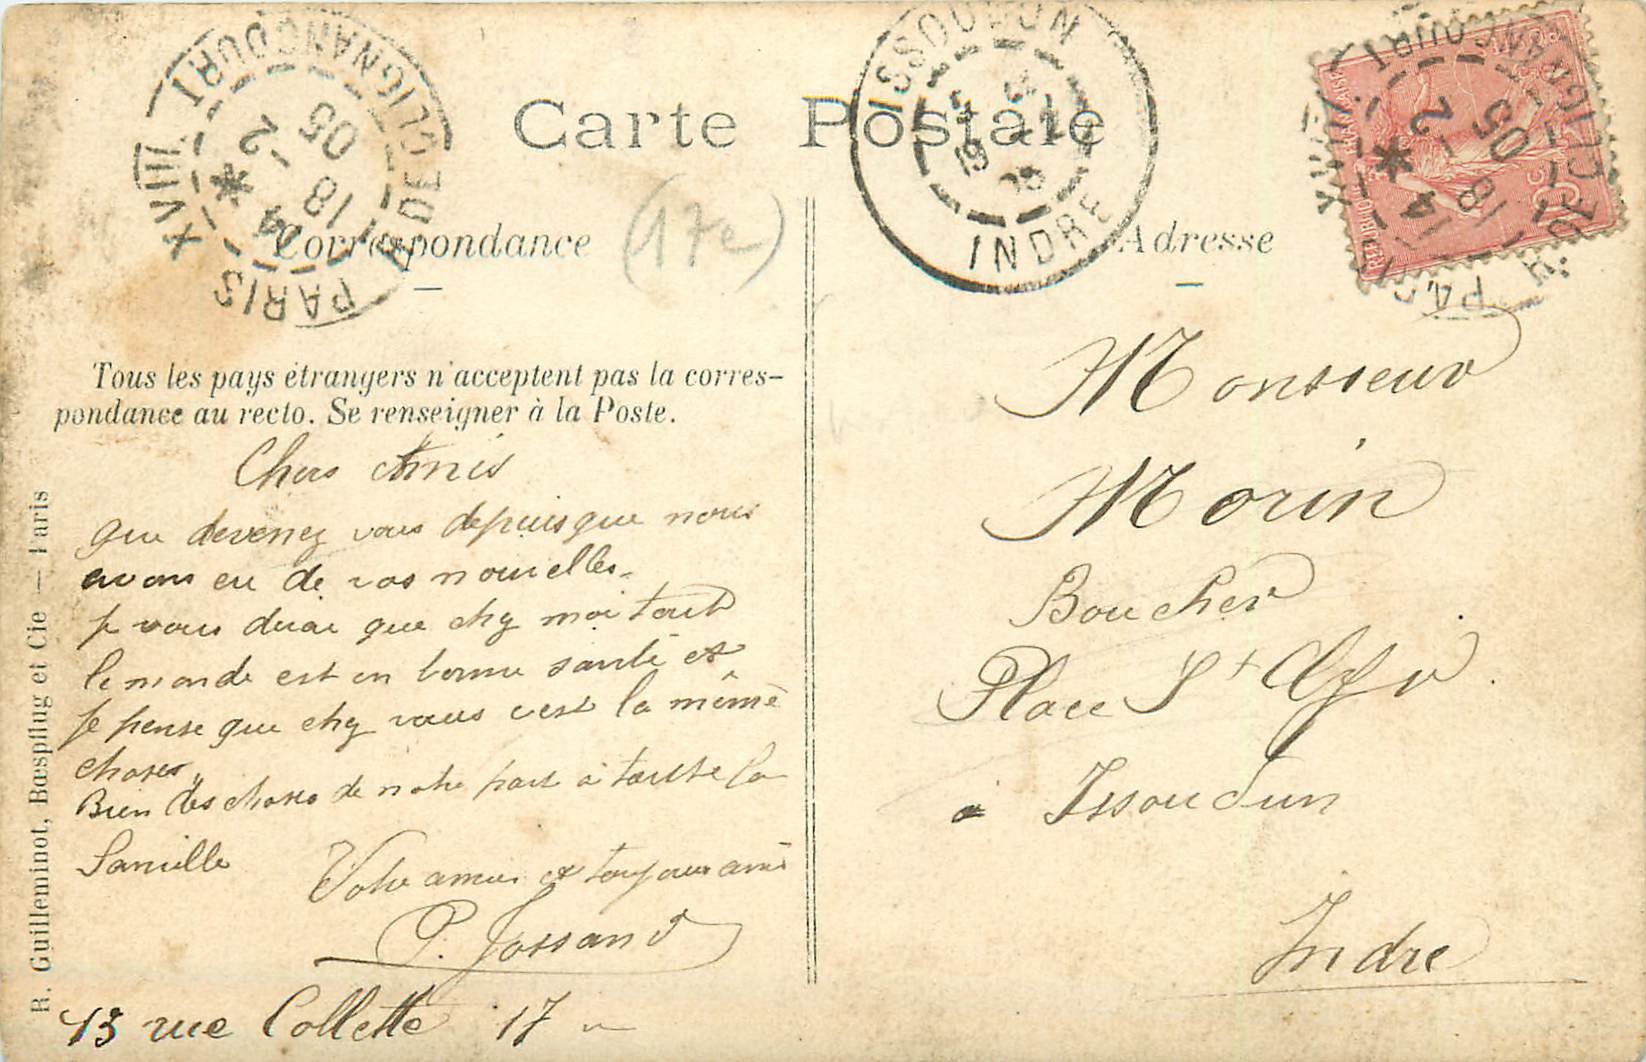 Carte Postale
Correspondance
(17e)
Adresse
PARIS XVIII R. DE CLIGNANCOURT
* 14
18 - 2
05
ISSOUDUN
INDRE
PARIS XVIII R. DE CLIGNANCOURT
* 14
18 - 2
05
Tous les pays étrangers n'acceptent pas la corres-
pondance au recto. Se renseigner à la Poste.
Chers Amis
que devenez vous depuis que nous
avons eu de vos nouvelles.
je vous dirai que chz moi tout
le monde est en bonne santé et
je pense que chz vous c'est la même
choses
Bien des choses de notre part à toute la
famille
Votre amie et toujours ami
P. Jossand
13 rue Collette 17
R. Guilleminot, Bœspflug et Cie — Paris
Monsieur
Morin
Boucher
Place St
à Issoudun
Indre